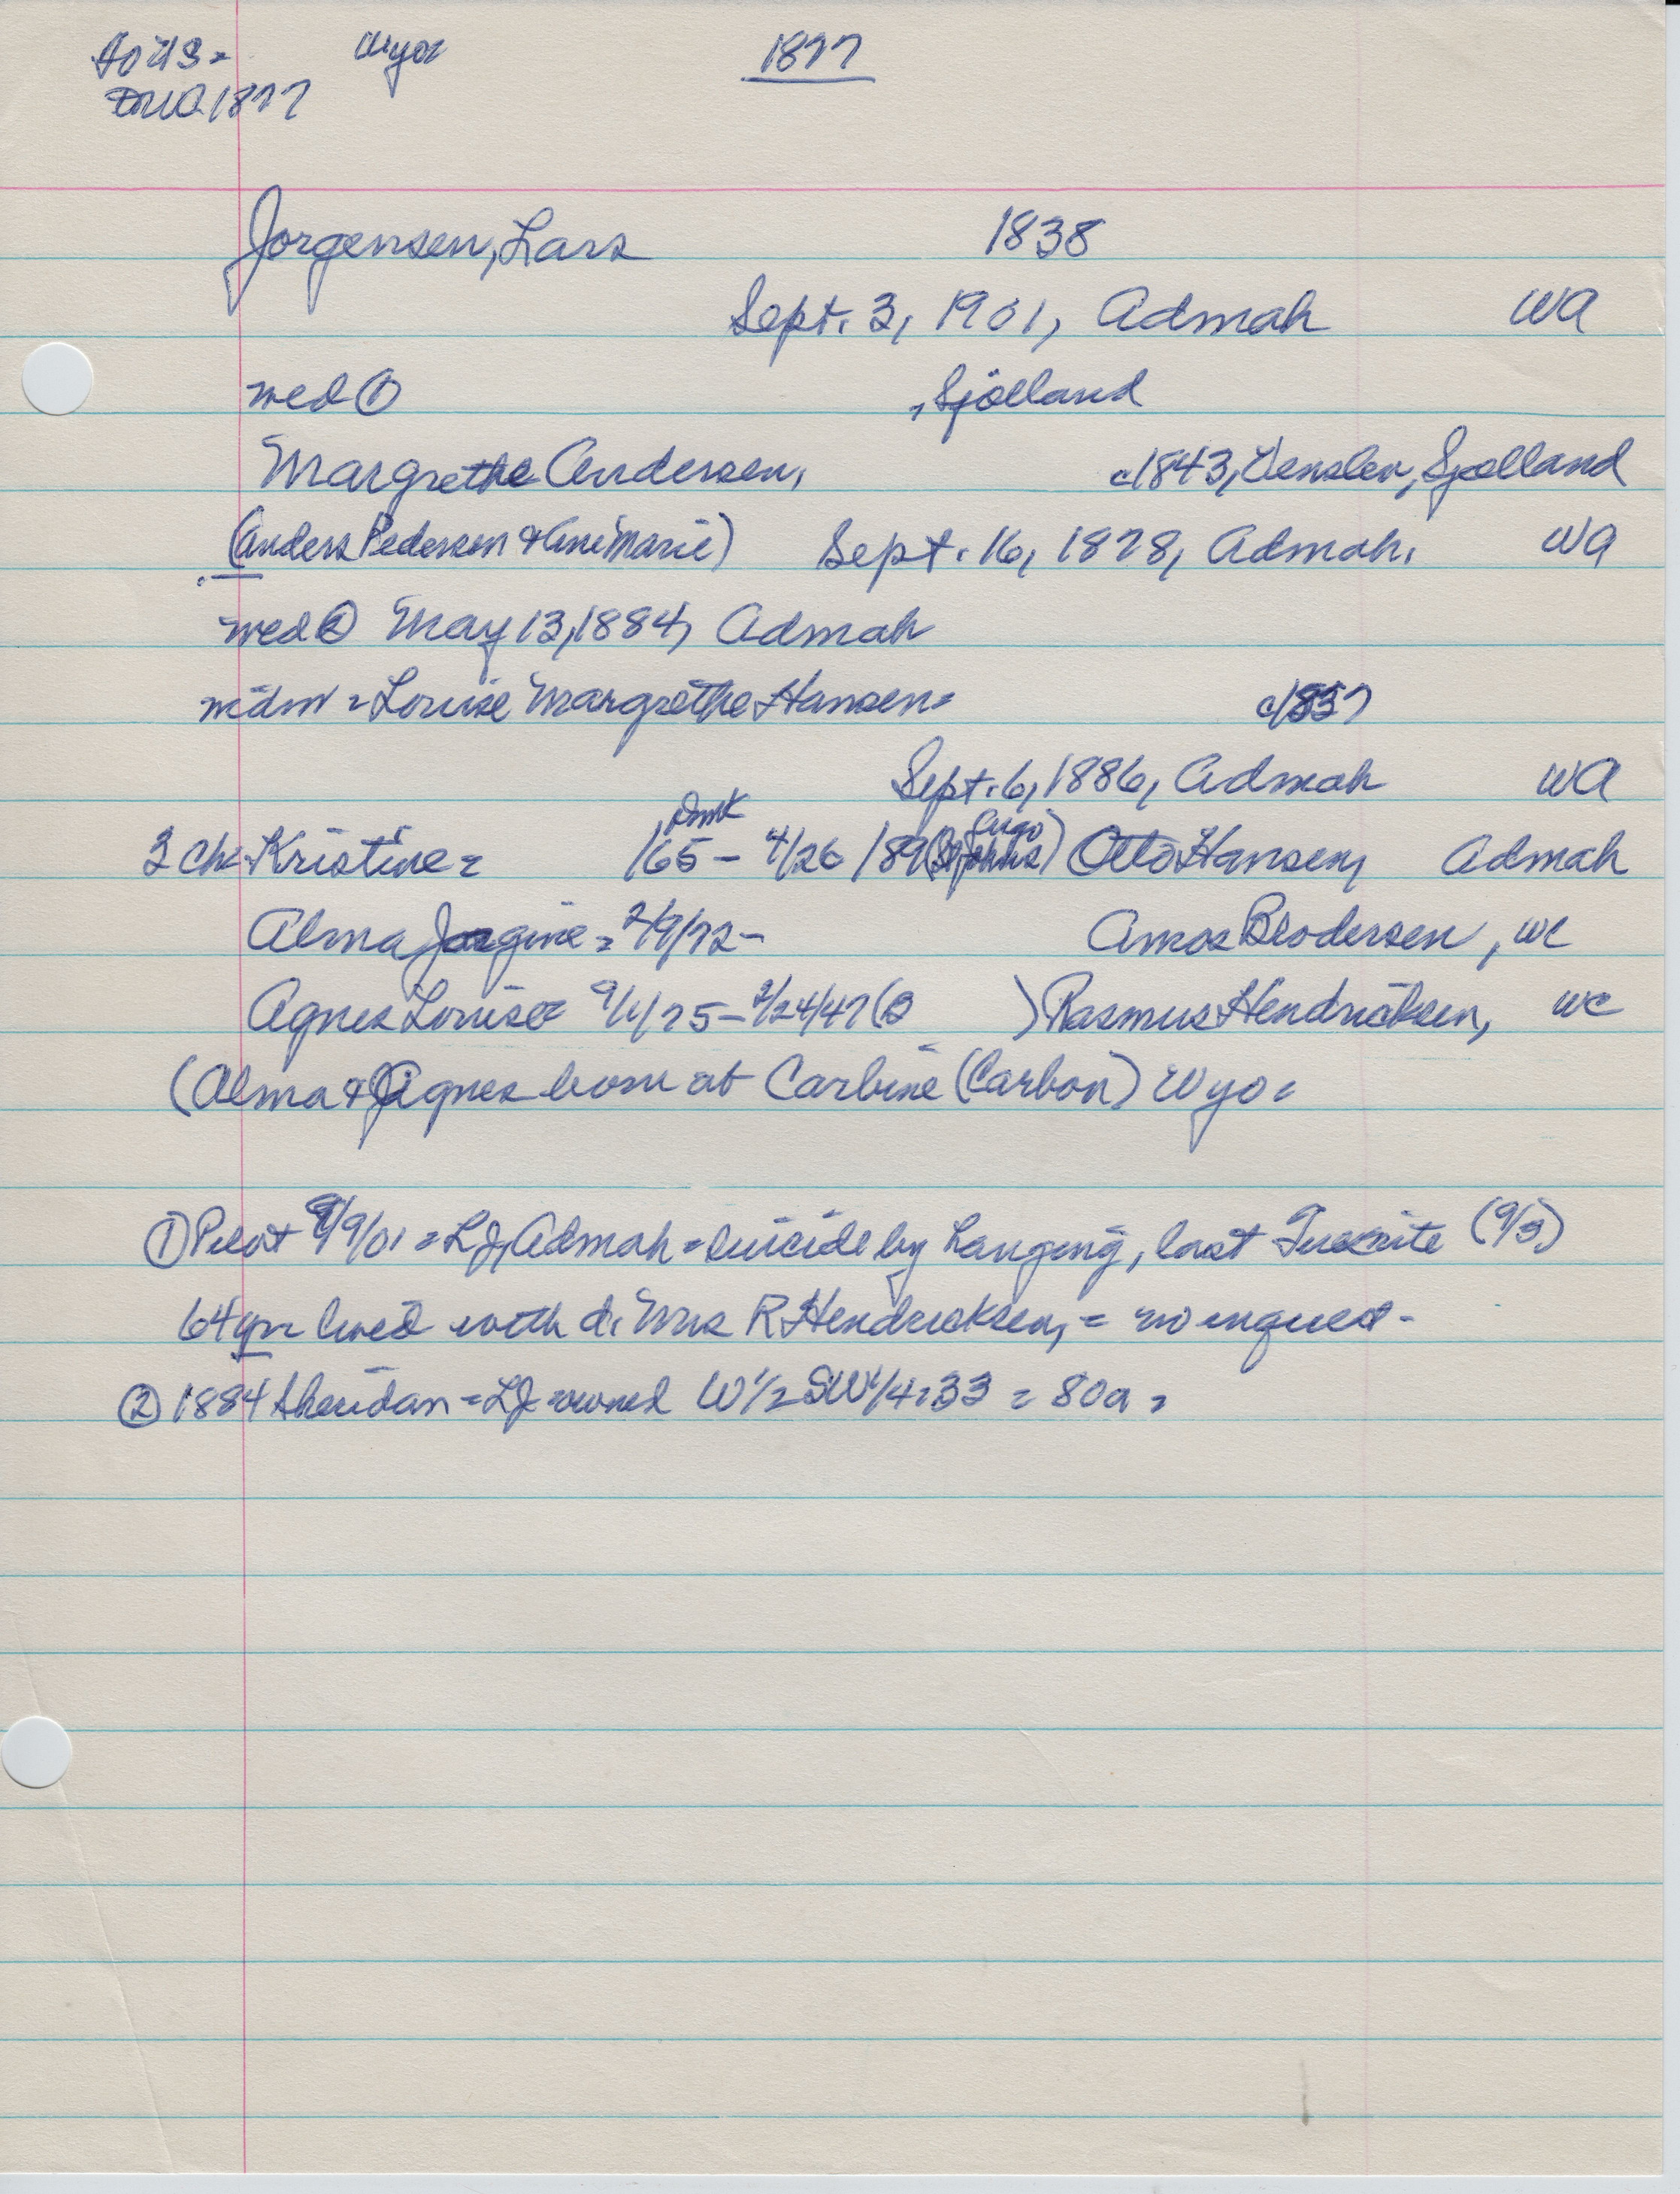 Wyo= 1877
1877
Jorgensen, Lars 1838
Sept. 3, 1901, Admah WA
wed ① , Sjölland
Margrethe Andersen, c1843, Sjælland
(Anders Pedersen & Ane Marie) Sept. 16, 1878, Admah. WA
wed ② May 13, 1884, Admah
= Louise Margrethe Hansen= c/1857
Sept. 6, 1886, Admah WA
, Dmk
3 ch= Kristine= /65 – 4/26/89 (St Johns) Otto Hansen, Admah
Alma Jorgine = 2/9/72 – Amos Brodersen, WC
Agnes Louise 9/1/75 – 2/24/47 (B ) Rasmus Hendricksen, WC
(Alma & Agnes born at Carbine (Carbon) Wyo=
① Pilot 9/9/01 = LJ, Admah = suicide by hanging, last Tuesnite (9/3)
64yr lived with d. Mrs R Hendricksen, = no inquest –
② 1884 Sheridan = LJ owned W 1/2 SW 1/4 : 33 = 80a =